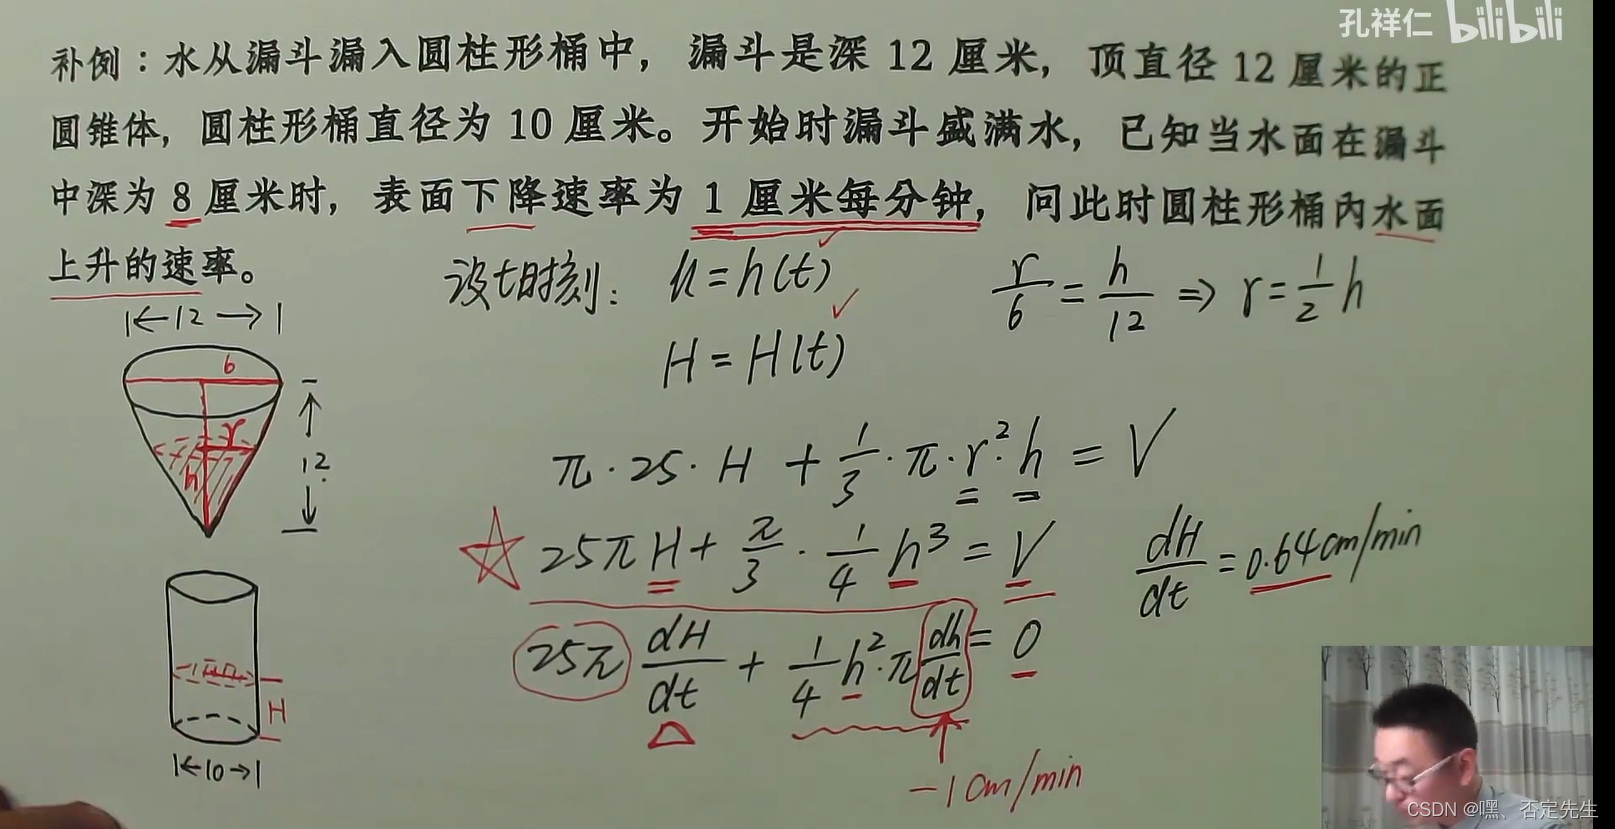 孔祥仁 bilibili
补例：水从漏斗漏入圆柱形桶中，漏斗是深 12 厘米，顶直径 12 厘米的正
圆锥体，圆柱形桶直径为 10 厘米。开始时漏斗盛满水，已知当水面在漏斗
中深为 8 厘米时，表面下降速率为 1 厘米每分钟，问此时圆柱形桶内水面
上升的速率。
设t时刻： h=h(t)
H=H(t)
r/6 = h/12 ⇒ r=1/2 h
|←12→|
6
r
h
12
π·25·H + 1/3·π·r²·h = V
☆ 25πH + π/3·1/4 h³ = V
dH/dt = 0.64cm/min
25π dH/dt + 1/4 h²·π dh/dt = 0
△
-1cm/min
H
|←10→|
CSDN @嘿、否定先生